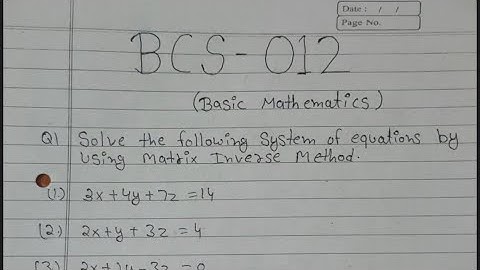 Date : / /
Page No.
BCS-012
(Basic Mathematics)
Q1 Solve the following System of equations by
Using Matrix Inverse Method.
(1) 3x+4y+7z =14
(2) 2x+y+3z = 4
(3) 2x+2y-3z = 0